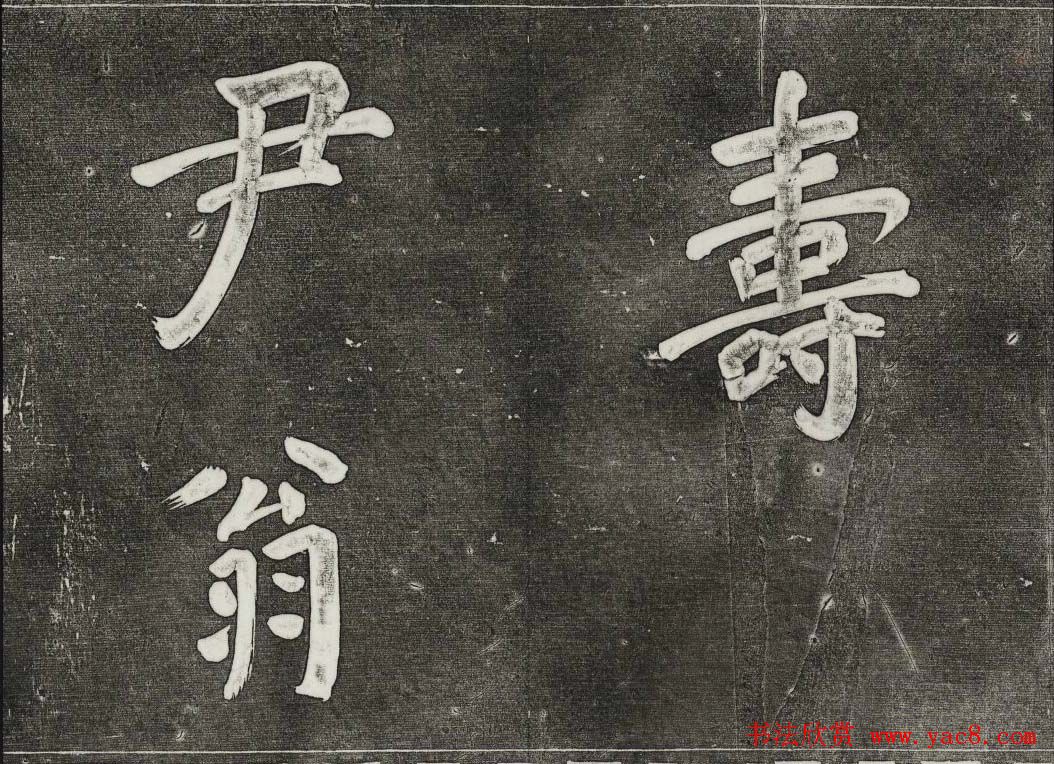 壽
尹翁
书法欣赏 www.yac8.com